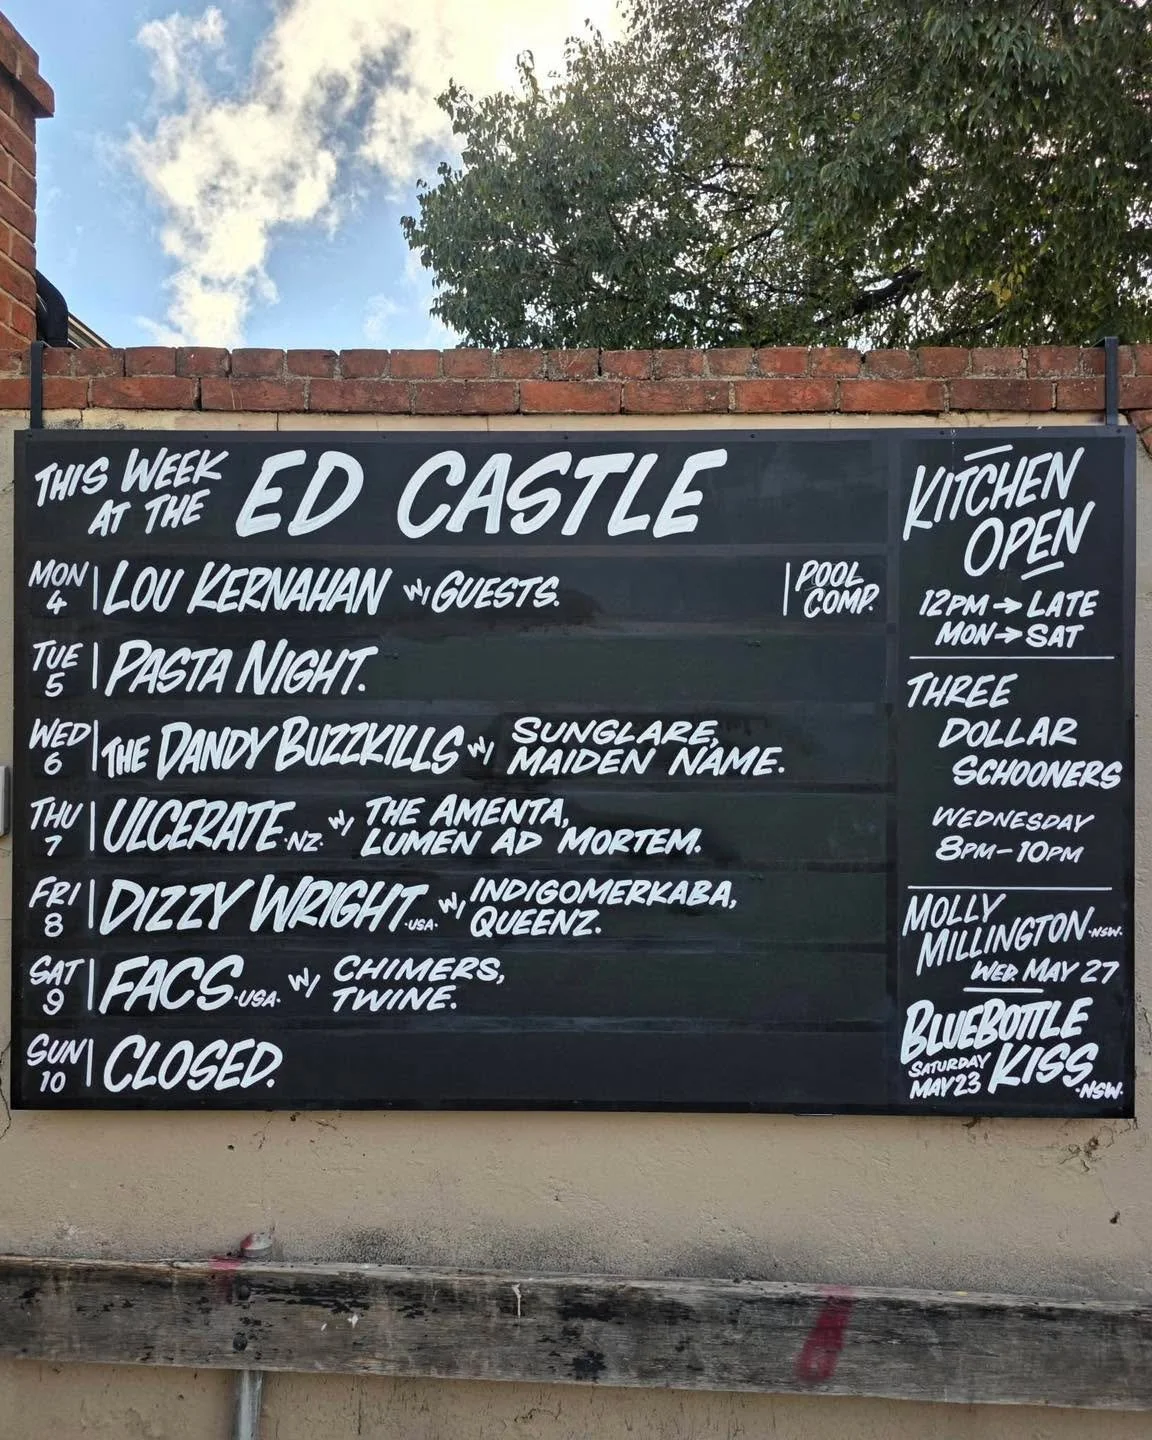 THIS WEEK
AT THE
ED CASTLE
MON
4
LOU KERNAHAN W/ GUESTS.
POOL
COMP.
TUE
5
PASTA NIGHT.
WED
6
THE DANDY BUZZKILLS W/
SUNGLARE,
MAIDEN NAME.
THU
7
ULCERATE ·NZ· W/
THE AMENTA,
LUMEN AD MORTEM.
FRI
8
DIZZY WRIGHT ·USA· W/
INDIGOMERKABA,
QUEENZ.
SAT
9
FACS ·USA· W/
CHIMERS,
TWINE.
SUN
10
CLOSED.
KITCHEN
OPEN
12PM → LATE
MON → SAT
THREE
DOLLAR
SCHOONERS
WEDNESDAY
8PM – 10PM
MOLLY
MILLINGTON ·NSW·
WED. MAY 27
BLUEBOTTLE
KISS ·NSW·
SATURDAY
MAY 23